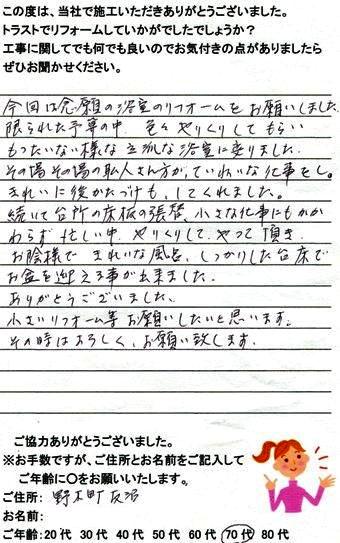 この度は、当社で施工いただきありがとうございました。
トラストでリフォームしていかがでしたでしょうか？
工事に関してでも何でも良いのでお気付きの点がありましたら
ぜひお聞かせください。
今回は念願の浴室のリフォームをお願いしました。
限られた予算の中、色々やりくりしてもらい
もったいない様な立派な浴室に変りました。
その場その場の職人さん方が、ていねいな仕事をし、
きれいに後かたづけも、してくれました。
続いて台所の床板の張替、小さな仕事にもかか
わらず忙しい中、やりくりして、やって頂き
お陰様で きれいな風呂、しっかりした台所床で
お盆を迎える事が出来ました。
ありがとうございました。
小さいリフォーム等お願いしたいと思います。
その時はよろしく、お願い致します。
ご協力ありがとうございました。
※お手数ですが、ご住所とお名前をご記入して
ご年齢に○をお願いいたします。
ご住所: 野木町友沼
お名前:
ご年齢:20代 30代 40代 50代 60代 70代 80代